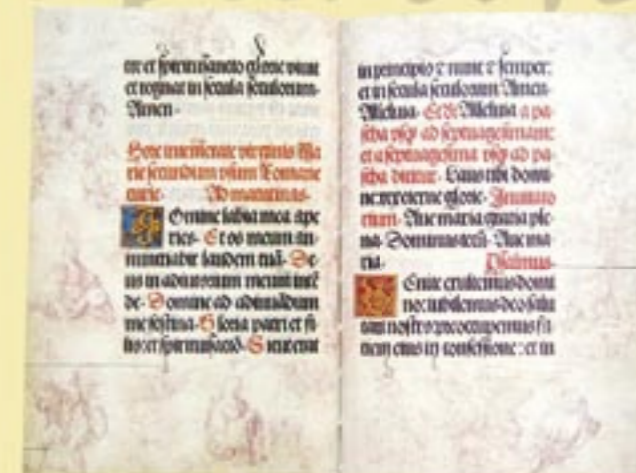 tre et spiritu sancto glorie vivit
et regnat in secula seculorum.
Amen.
Hore intemerate virginis Ma
rie secundum usum Romane
curie. Ad matutinas.
Domine labia mea ape
ries. Et os meum an
nuntiabit laudem tuā. De
us in adiutorium meum intē
de. Domine ad adiuvādum
me festina. Gloria patri et fi
lio: et spiritui sctō. Sicut erat
in principio ⁊ nunc ⁊ semper:
et in secula seculorum Amen.
Alleluia. Et dr̄ Alleluia a pa
scha usq; ad septuagesimam:
et a septuagesima usq; ad pa
scha dicitur. Laus tibi domi
ne rex eterne glorie. Invitato
rium. Ave maria gratia ple
na. Dominus tecū. Ave ma
ria. Psalmus.
Venite exultemus domi
no: iubilemus deo salu
tari nostro: preoccupemus fa
ciem eius in confessione: et in